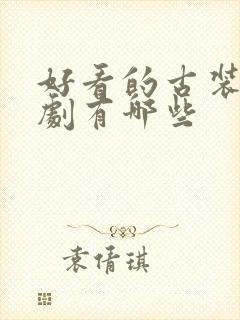 好看的古装
劇有哪些
袁倩琪